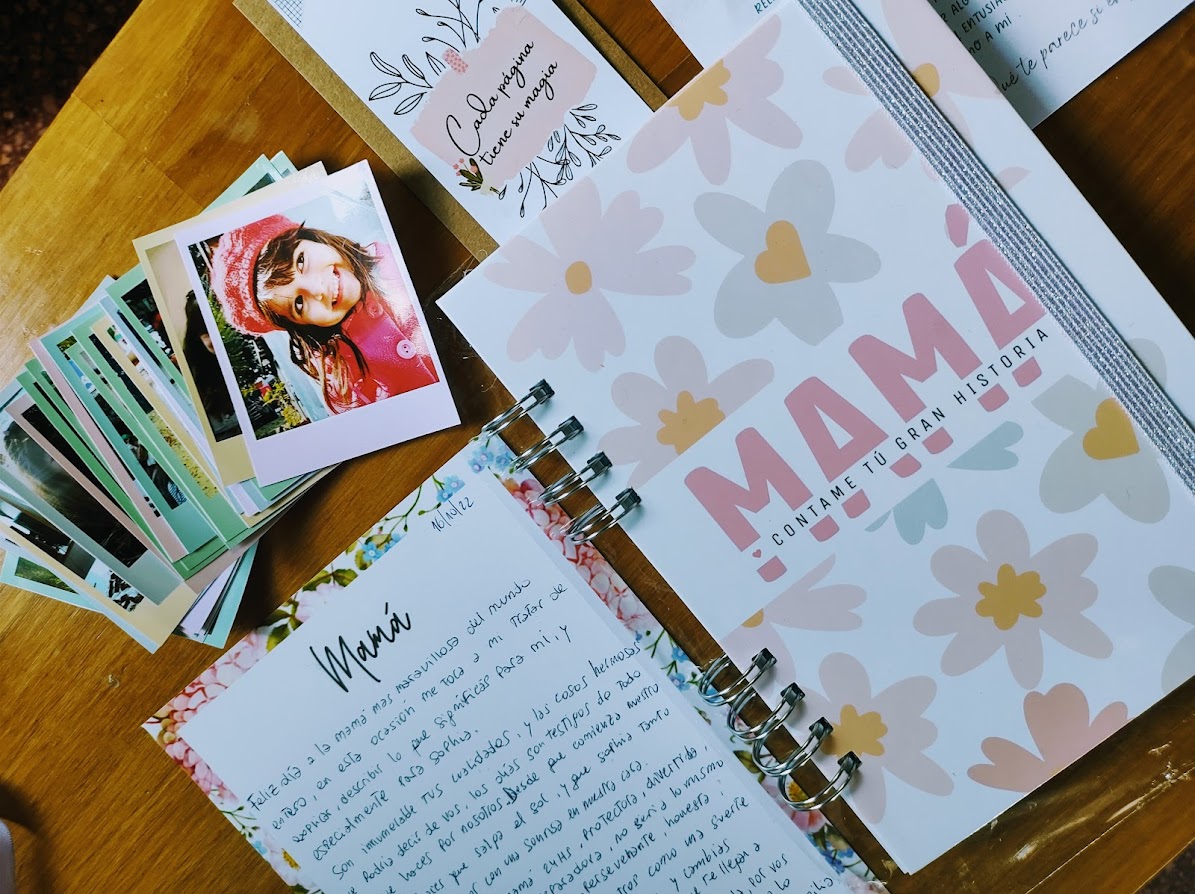 Cada página
tiene su magia
ENTUSIA
NO A MI
te parece si
MAMÁ
CONTAME TÚ GRAN HISTORIA
16/10/22
Mamá
Feliz día a la mamá más maravillosa del mundo
entero, en esta ocasión me toca a mi tratar de
explicar, describir lo que significas para mi, y
especialmente para Sophia.
Son innumerable tus cualidades, y las cosas hermosas
que Podria decir de vos, los días son testigos de todo
que haces por nosotros. Desde que comienza nuestro
que salga el sol, y que sophia tanto
con una sonrisa en nuestra cara.
mamá 24Hs, Protectora, divertida,
Perseverante, honesta;
no seria lo mismo
como una suerte
y cambias
te llegar a
por vos